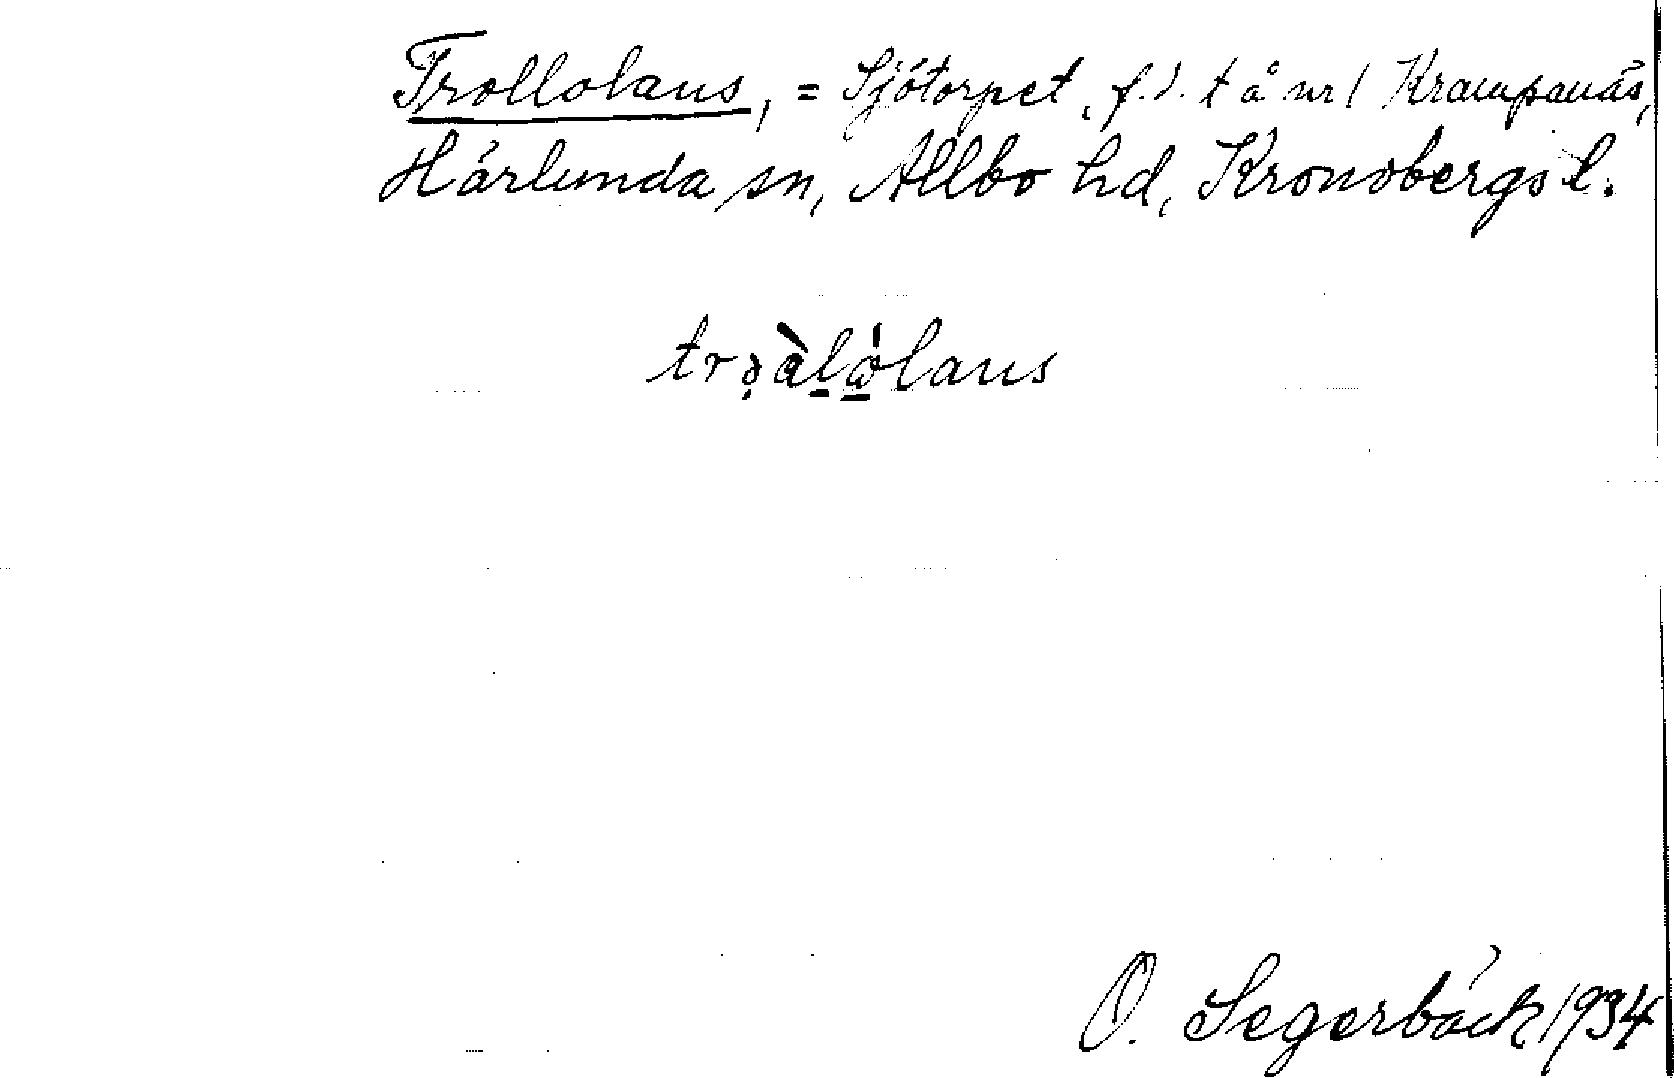 Trollolaus, = Sjötorpet, f.d. t å nr 1 Krampanäs,
Härlunda sn, Allbo hd, Kronobergs l.
O. Segerbäck 1934